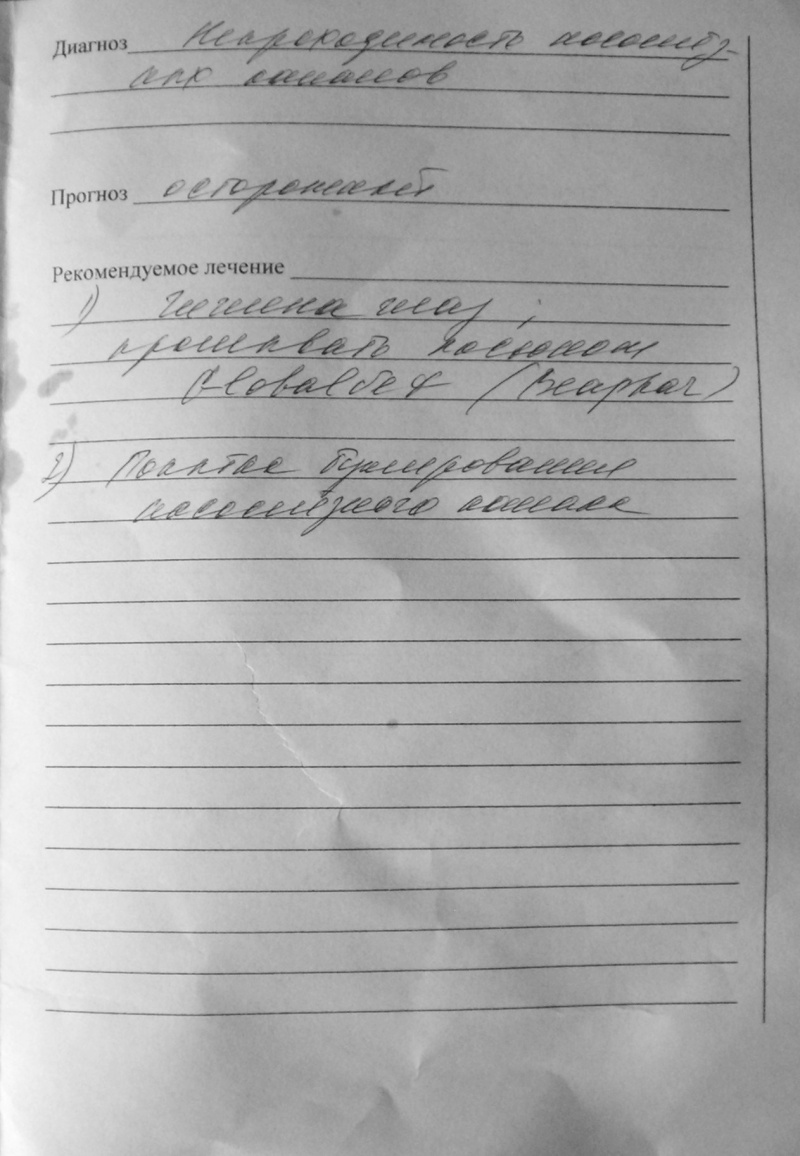 Диагноз Непроходимость носослёз-
ных каналов
Прогноз осторожный
Рекомендуемое лечение
1) Гигиена глаз ;
промывать лосьоном
(Beaphar)
2) Попытка бужирования
носослёзного канала